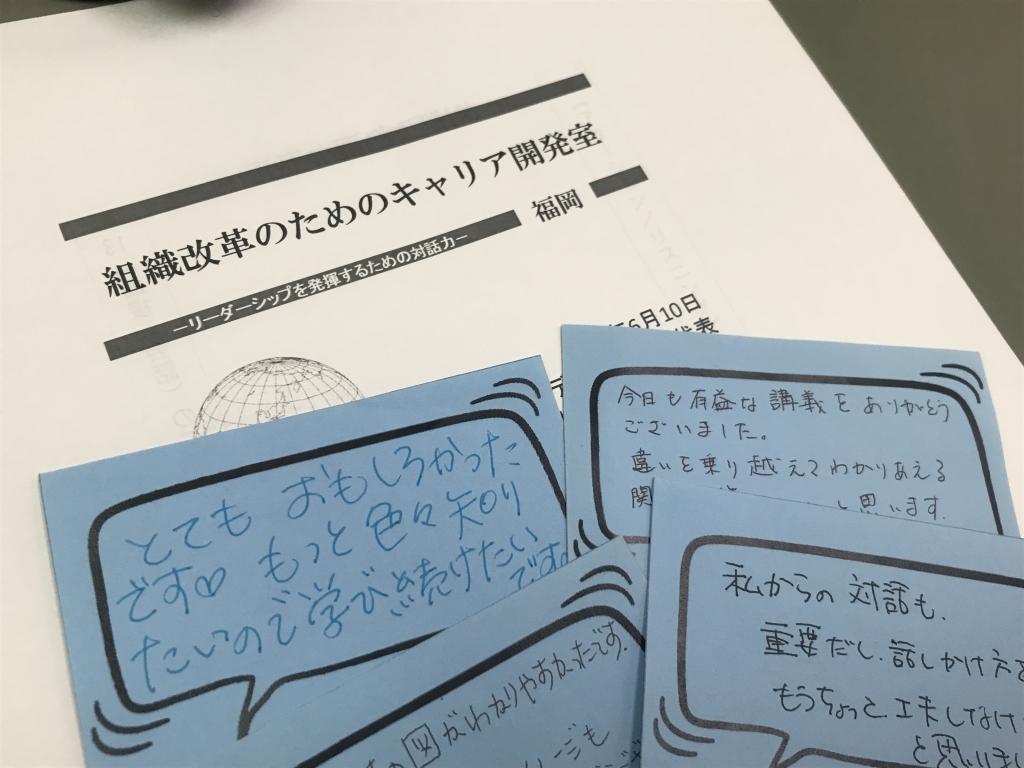 組織改革のためのキャリア開発室
福岡
ーリーダーシップを発揮するための対話力ー
6月10日
代表
とても おもしろかった
です♡ もっと色々知り
たいので学び続けたい
です
今日も有益な講義をありがとう
ございました。
違いを乗り越えてわかりあえる
関 思います.
私からの対話も、
重要だし、話しかけ方を
もうちょっと、工夫しなけ
と思いまし
図がわかりやすかったです.
ージも